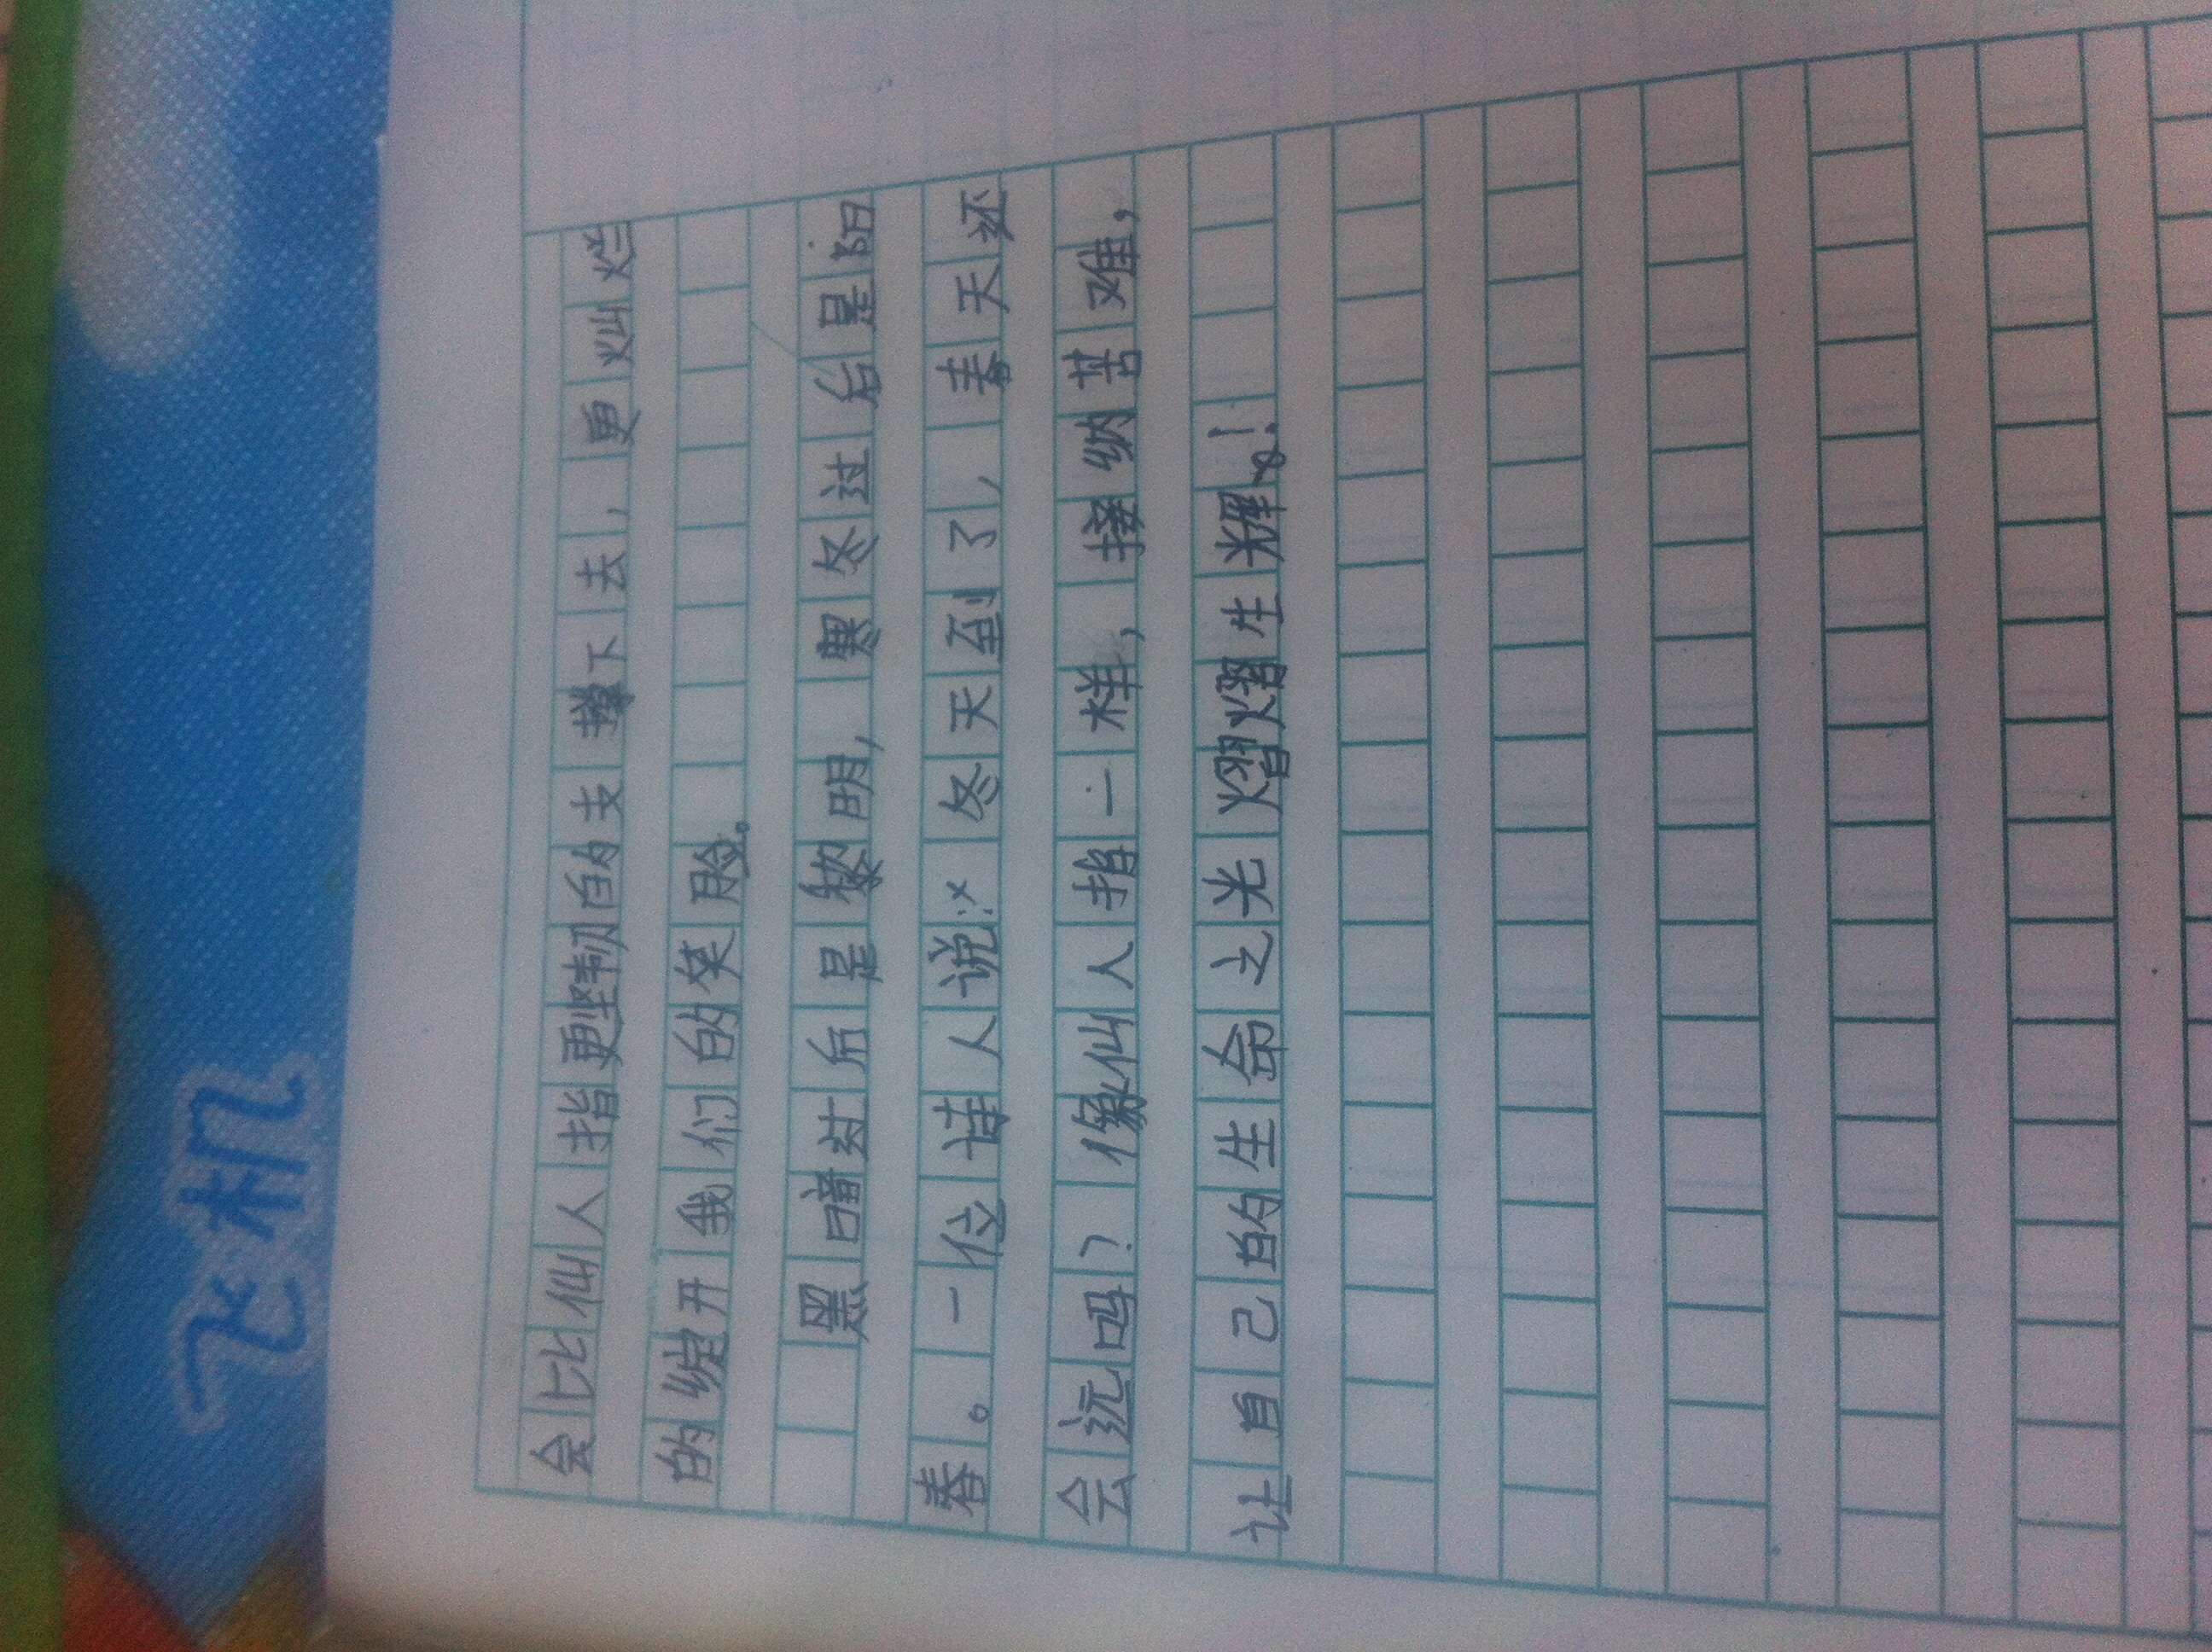 飞机
会比仙人指更坚韧的支撑下去，更灿烂
的绽开我们的笑脸。
黑暗过后是黎明，寒冬过后是阳
春。一位诗人说：冬天到了，春天还
会远吗？像仙人指一样，接纳苦难，
让自己的生命之光熠熠生辉！